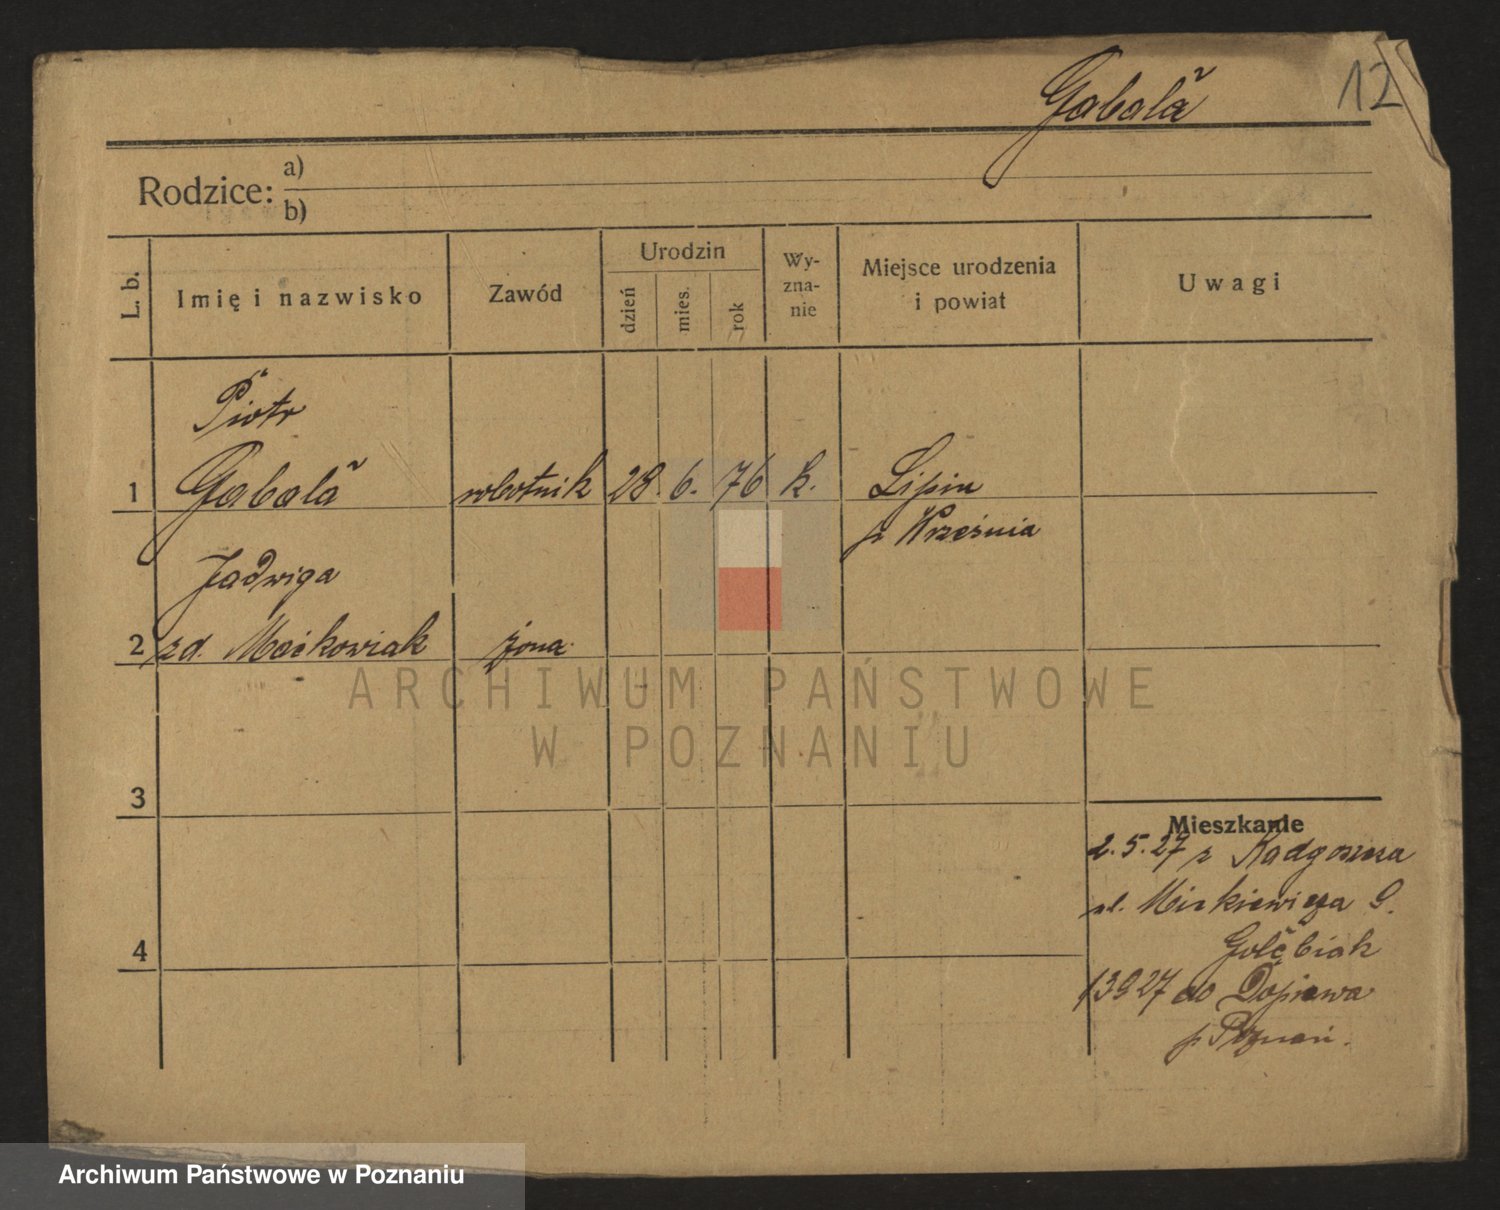 12
Gabała
Rodzice: a)
b)
L. b.
Imię i nazwisko
Zawód
Urodzin
dzień
mies.
rok
Wy-
zna-
nie
Miejsce urodzenia
i powiat
Uwagi
Piotr
1 Gabała robotnik 28. 6. 76 k. Lipiu
p Września
Jadwiga
2 zd. Maćkowiak żona
3
4
Mieszkanie
2.5.27 z Radgoszcza
ul. Mickiewicza 9.
Golębiak
13927 do Dopiewa
p Poznań.
ARCHIWUM PAŃSTWOWE
W POZNANIU
Archiwum Państwowe w Poznaniu